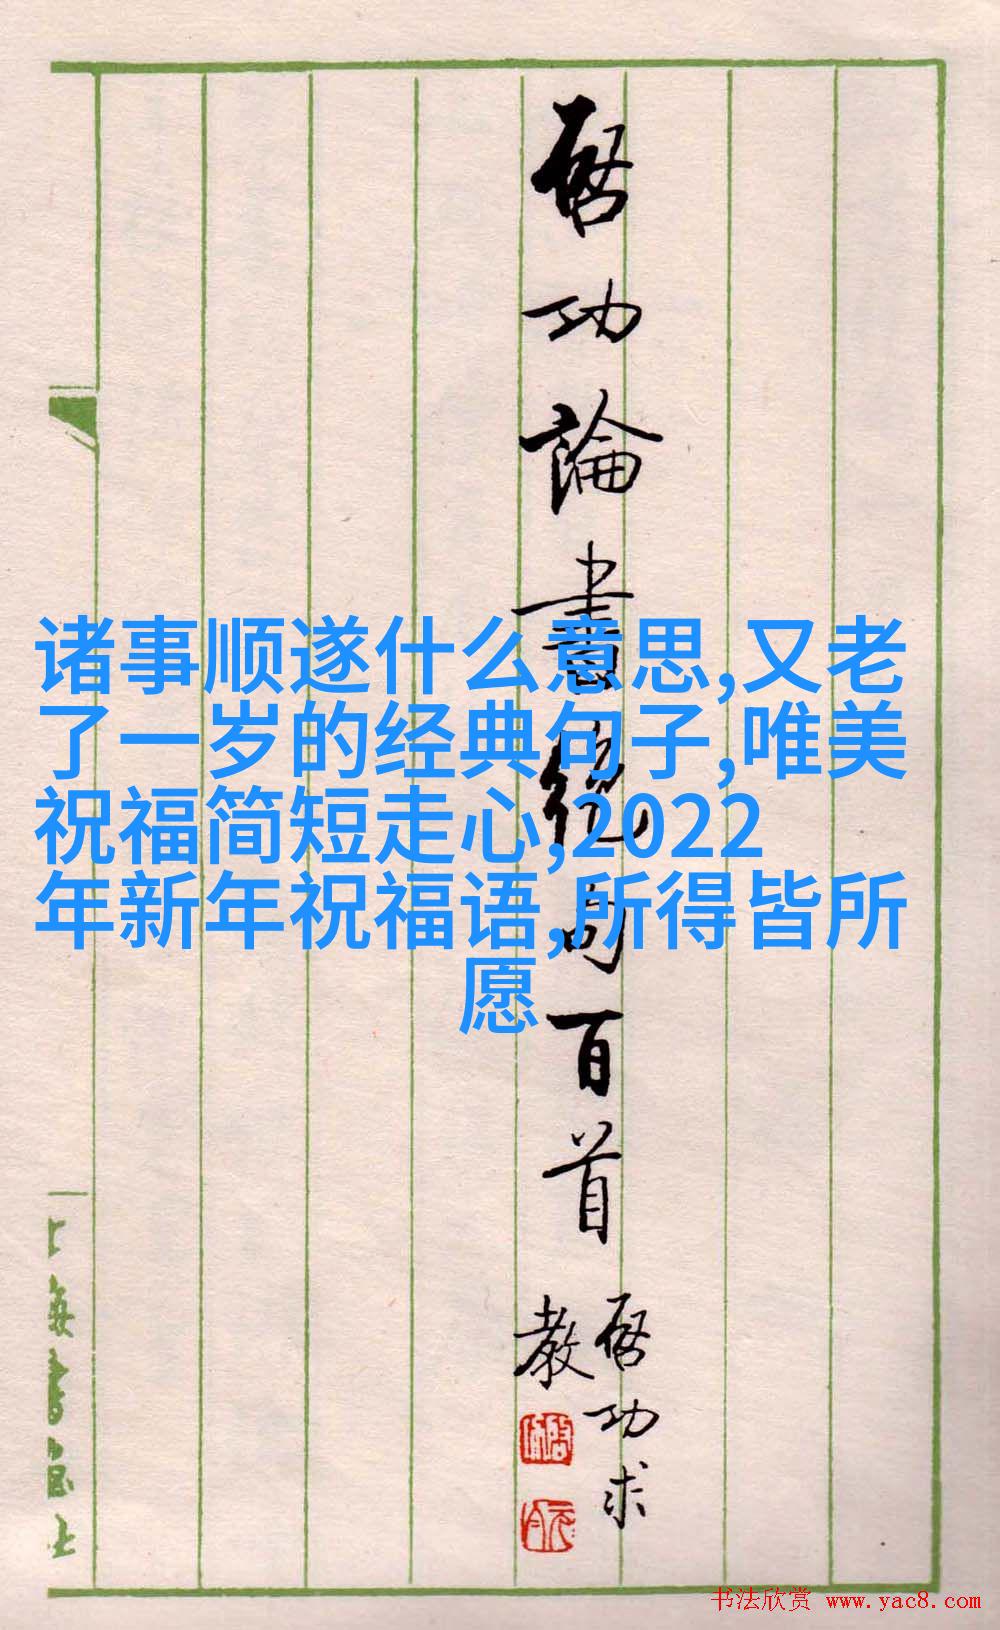 启功論書絕句百首
启功求
教
诸事顺遂什么意思,又老
了一岁的经典句子,唯美
祝福简短走心,2022
年新年祝福语,所得皆所
愿
上海書画社
书法欣赏 www.yac8.com